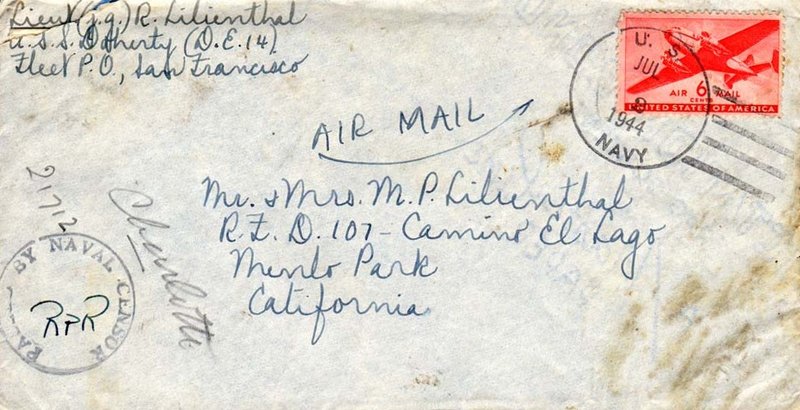 Lieut (j.g.) R. Lilienthal
U.S.S. Doherty (D.E. 14)
Fleet P.O., San Francisco
U. S.
JUL
1944
NAVY
AIR 6 MAIL
CENTS
UNITED STATES OF AMERICA
AIR MAIL
Mr. & Mrs. M. P. Lilienthal
R.F.D. 107 - Camino El Lago
Menlo Park
California
21712
Charlotte
BY NAVAL CENSOR
RPR